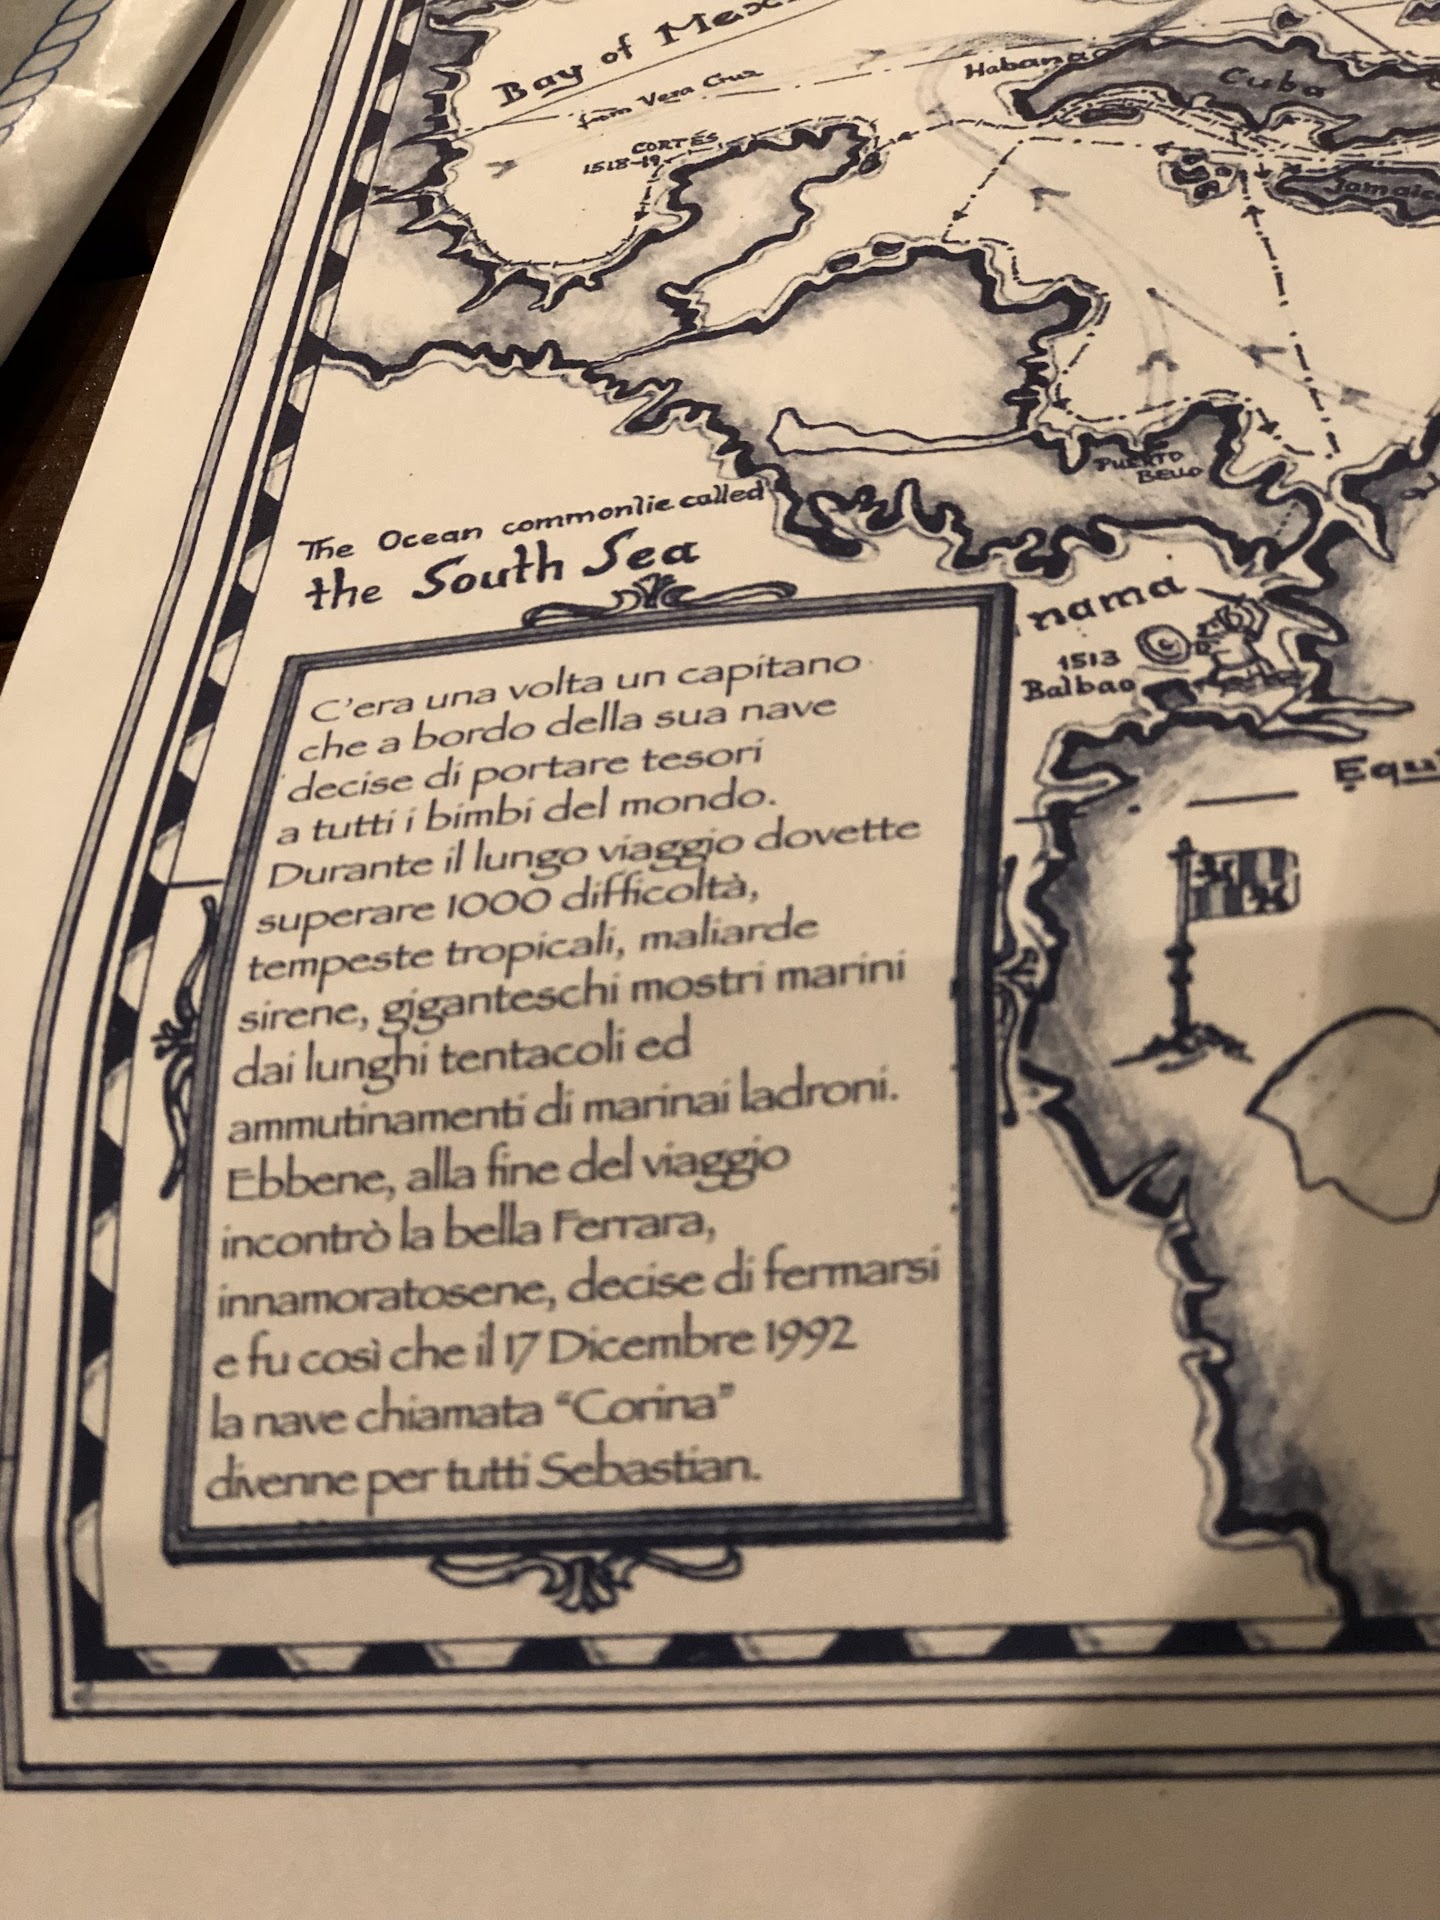 Bay of
Habana
Cuba
from Vera Cruz
CORTÉS
1518-19
Jamaic
PUERTO
BELLO
The Ocean commonlie called
the South Sea
nama
1513
Balbao
Equi
C'era una volta un capitano
che a bordo della sua nave
decise di portare tesori
a tutti i bimbi del mondo.
Durante il lungo viaggio dovette
superare 1000 difficoltà,
tempeste tropicali, maliarde
sirene, giganteschi mostri marini
dai lunghi tentacoli ed
ammutinamenti di marinai ladroni.
Ebbene, alla fine del viaggio
incontrò la bella Ferrara,
innamoratosene, decise di fermarsi
e fu così che il 17 Dicembre 1992
la nave chiamata “Corina”
divenne per tutti Sebastian.